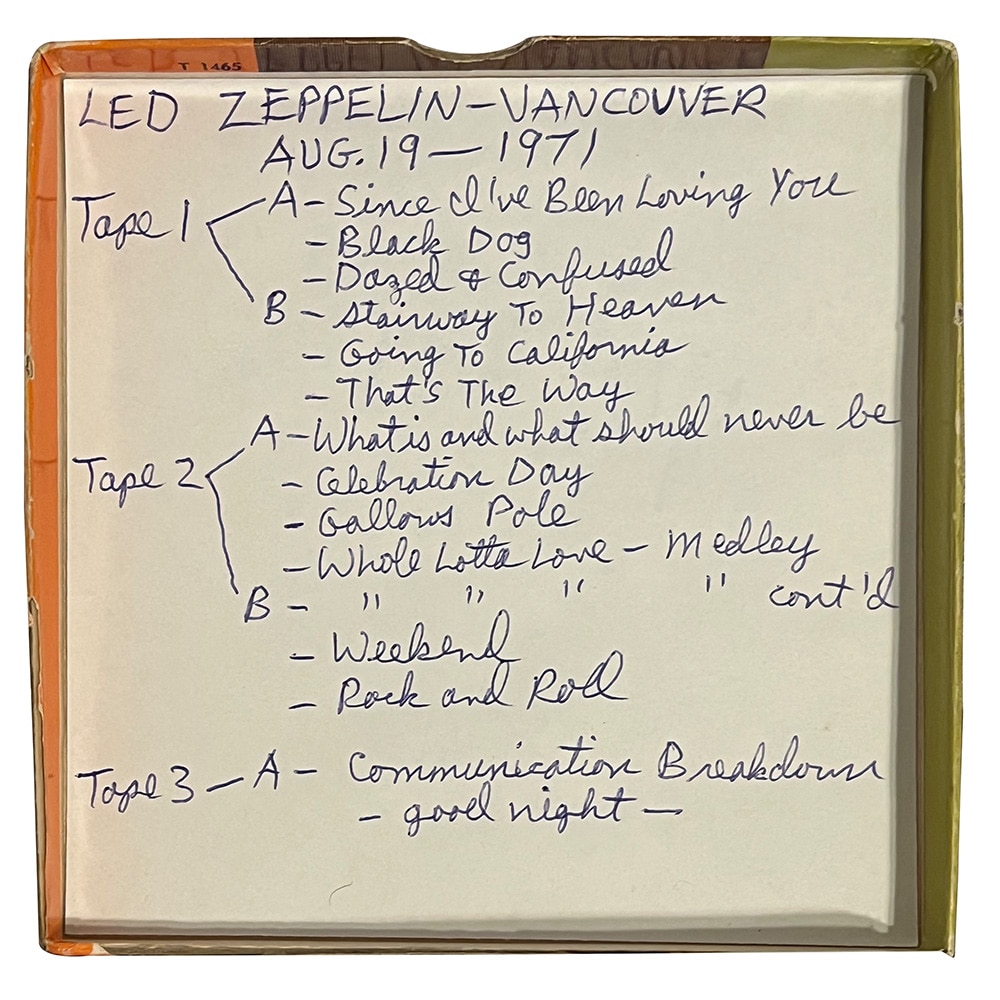 T 1465
LED ZEPPELIN-VANCOUVER
AUG. 19 - 1971
Tape 1 A - Since I've Been Loving You
- Black Dog
- Dazed & Confused
B - Stairway To Heaven
- Going To California
- That's The Way
Tape 2 A - What is and what should never be
- Celebration Day
- Gallows Pole
- Whole Lotta Love - Medley
B - " " " " cont'd
- Weekend
- Rock and Roll
Tape 3 - A - Communication Breakdown
- good night -